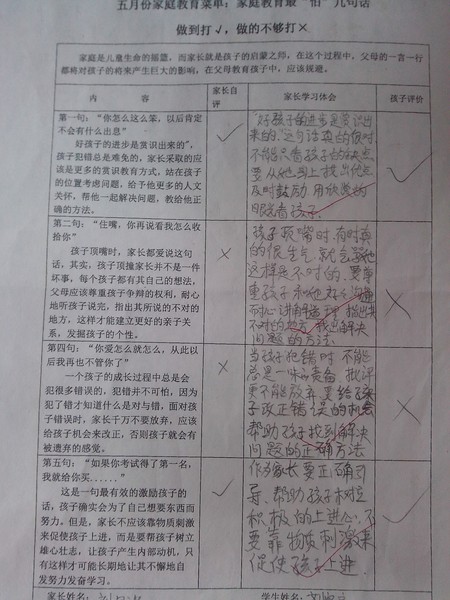 五月份家庭教育菜单：家庭教育最“怕”几句话
做到打√，做的不够打×
家庭是儿童生命的摇篮，而家长就是孩子的启蒙之师，在这个过程中，父母的一言一行
都将对孩子的将来产生巨大的影响，在父母教育孩子中，应该规避。
内 容
家长自评
家长学习体会
孩子评价
第一句：“你怎么这么笨，以后肯定
不会有什么出息”
好孩子的进步是赏识出来的”，
孩子犯错总是难免的，家长采取的应
该是更多的赏识教育方式，站在孩子
的位置考虑问题，给予他更多的人文
关怀，帮他一起解决问题，教给他正
确的方法。
√
“好孩子的进步是赏识出
来的”这句话真的很对
不能只看孩子的缺点
要从他身上找出优点
及时鼓励 用欣赏的
眼光看孩子.
√
第二句：“住嘴，你再说看我怎么收
拾你”
孩子顶嘴时，家长都爱说这句
话，其实，孩子顶撞家长并不是一件
坏事，每个孩子都有其自己的想法，
父母应该尊重孩子争辩的权利，耐心
地听孩子说完，指出其所说的不对的
地方，这样才能建立更好的亲子关
系，发掘孩子的个性。
×
孩子顶嘴时，有时真
的很生气，就会骂他
这样是不对的，要尊
重孩子 和他好好沟通
耐心 讲解道理 指出其
不对的地方，找出解决
问题的方法.
×
第四句：“你爱怎么就怎么，从此以
后我再也不管你了”
一个孩子的成长过程中总是会
犯很多错误的，犯错并不可怕，因为
犯了错才知道什么是对与错，面对孩
子错误时，家长千万不要放弃，应该
给孩子机会来改正，否则孩子就会有
被遗弃的感觉。
×
当孩子犯错时 不能
总是一味的责备 批评
更不能放弃.要给了孩
子改正错误的机会
帮助孩子找到解决
问题的正确方法
×
第五句：“如果你考试得了第一名，
我就给你买……”
这是一句最有效的激励孩子的
话，孩子确实会为了自己想要东西而
努力，但是，家长不应该靠物质刺激
来促使孩子上进，而是要帮孩子树立
雄心壮志，让孩子产生内部动机，只
有这样才可能长期地让其不懈地自
发努力奋备学习。
√
作为家长要正确引
导、帮助孩子树立
积极的上进心.不
要靠物质刺激来
促使孩子上进.
√
家长姓名：
学生姓名：